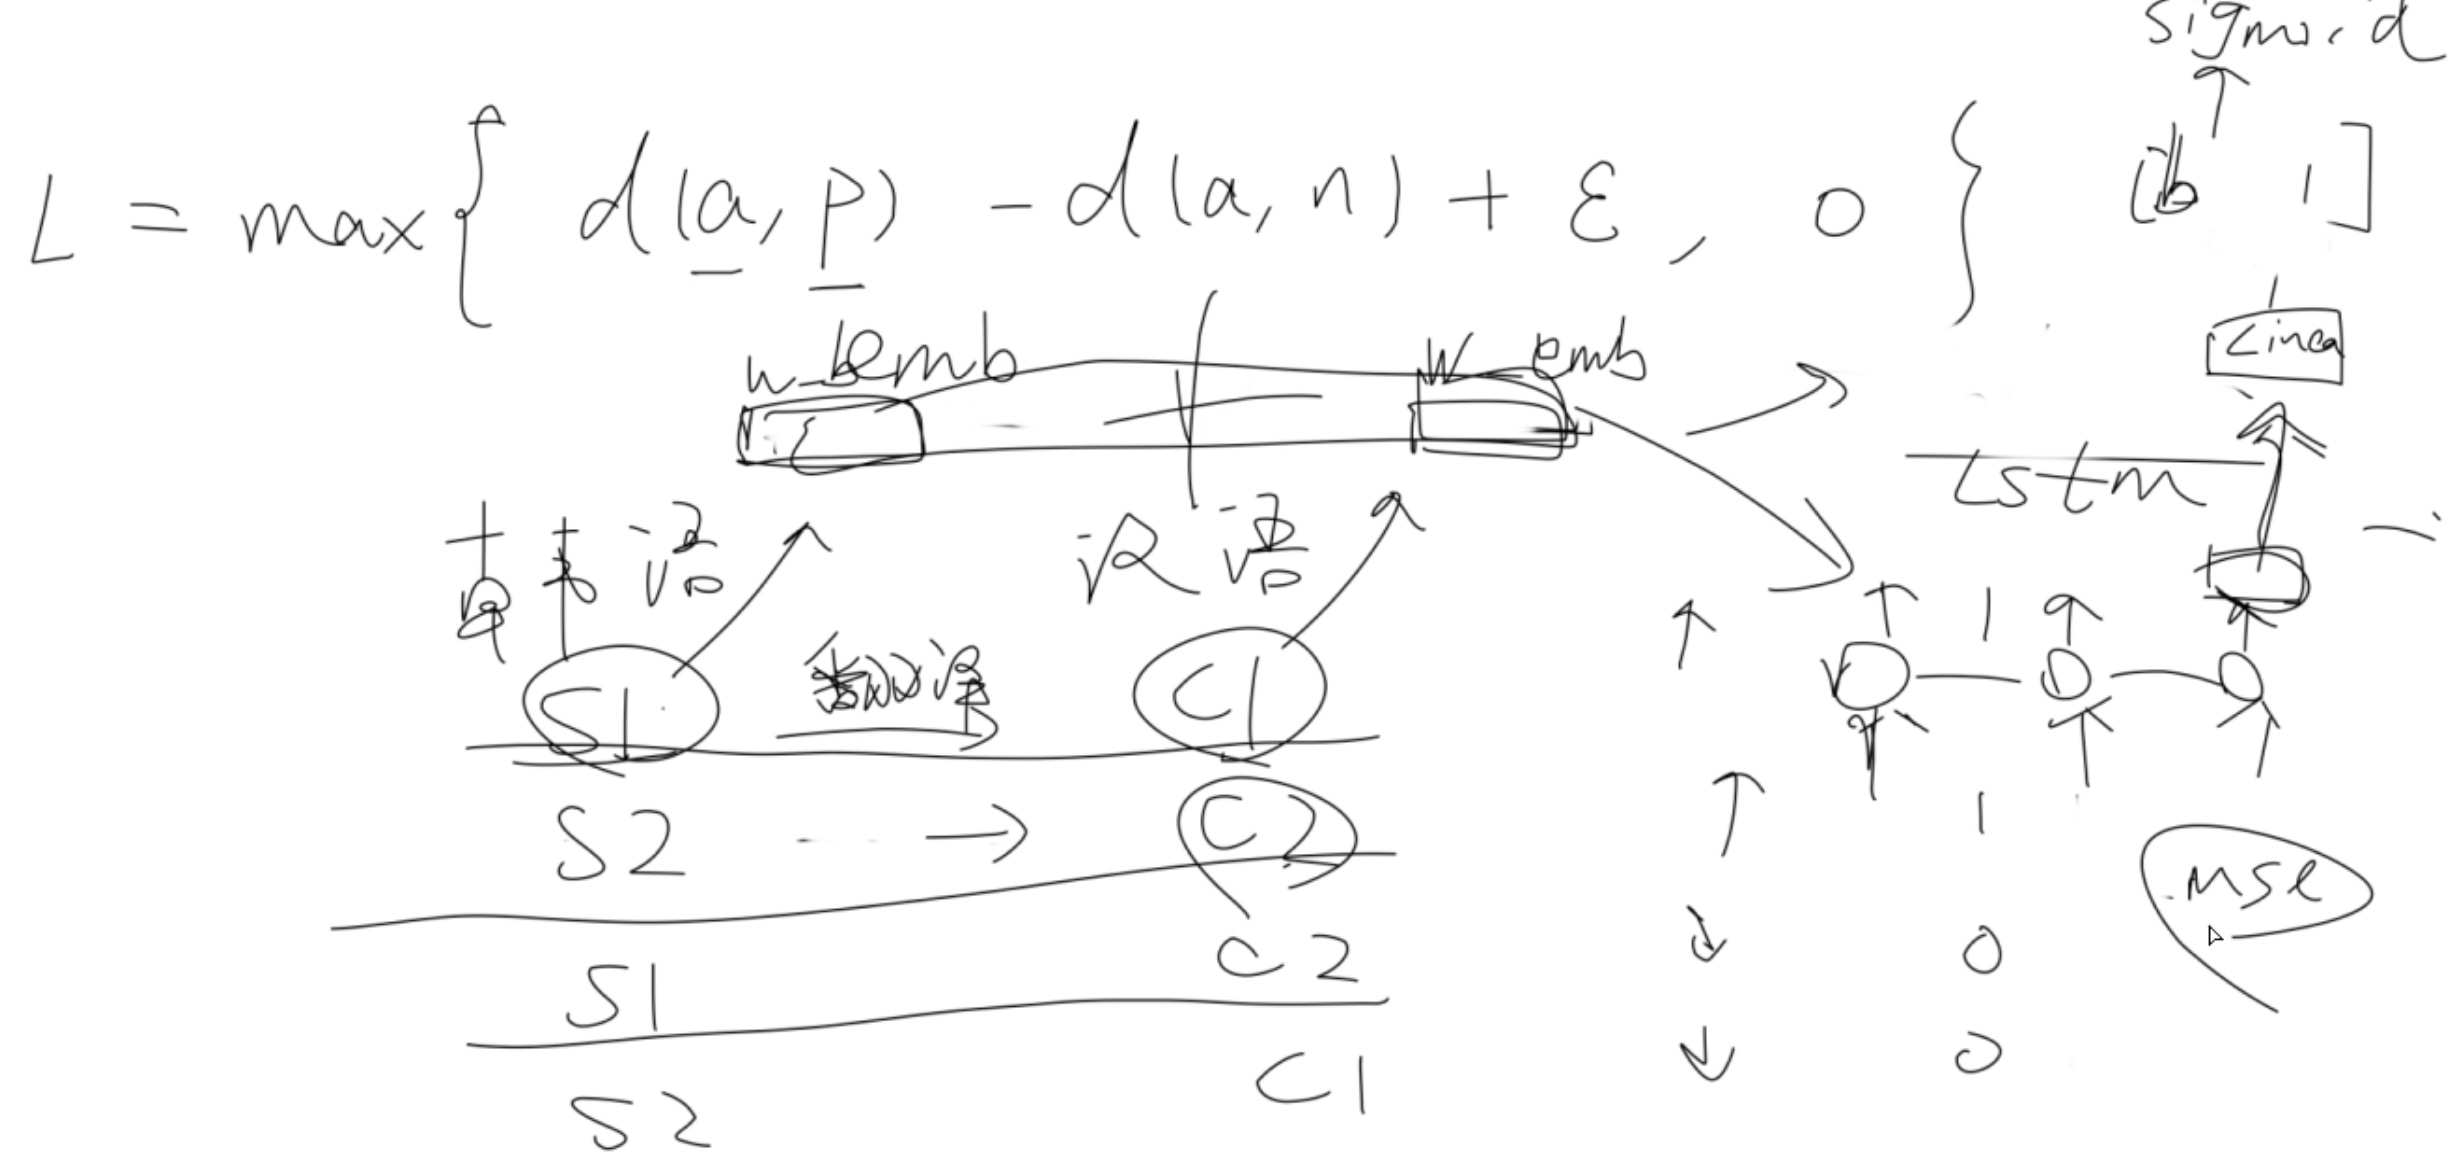 sigmoid
L = max{ d(a, p) - d(a, n) + ε, 0 }
[b 1]
w_emb
w_emb
Linea
Lstm
汉语
S1 翻译 C1
S2 → C2
1
mse
S1 C2 0
S2 C1 0